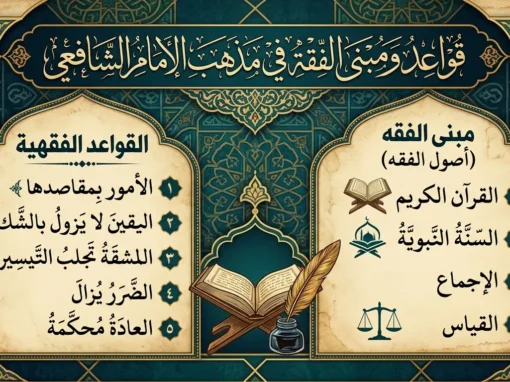 قُوَاعِدُ وَمُبْنَى الفِّقْهُ فِي مَذْهَبَ الإِمَامُ الشَّافِعِي
مبنى الفقه
(أصول الفقه)
القرآن الكريم
السّنَّةُ النَّبويَّةُ
الإجماع
القياس
القواعد الفقهية
١ الأمور بِمقاصدها
٢ اليقينَ لا يَزولُ بالشَّك
٣ اللشقَةُ تَجلبُ التَّيسِير
٤ الضَّرَرُ يُزالَ
٥ العادَةُ مُحكَّمَةُ